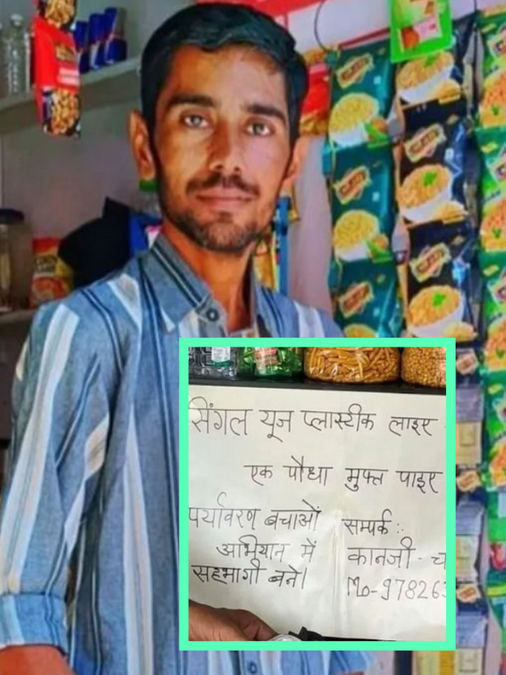 सिंगल यूज प्लास्टीक लाइए
एक पौधा मुफ्त पाइए
पर्यावरण बचाओं
अभियान में
सहभागी बने।
सम्पर्क :-
कानजी - च
Mo-97826